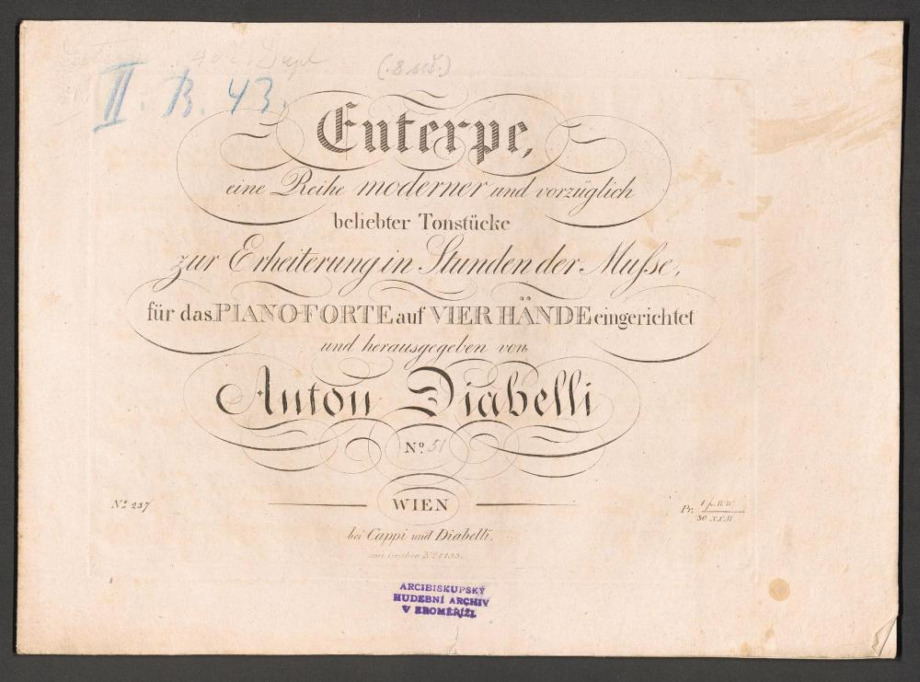 II. B. 43.
(.8 sešť.)
Euterpe,
eine Reihe moderner und vorzüglich
beliebter Tonstücke
zur Erheiterung in Stunden der Muſse,
für das PIANO-FORTE auf VIER HÄNDE eingerichtet
und herausgegeben von
Anton Diabelli
Nº 51
Nº 237
WIEN
Pr.
bei Cappi und Diabelli,
am Graben Nº 1133.
ARCIBISKUPSKÝ
HUDEBNÍ ARCHIV
V KROMĚŘÍŽI